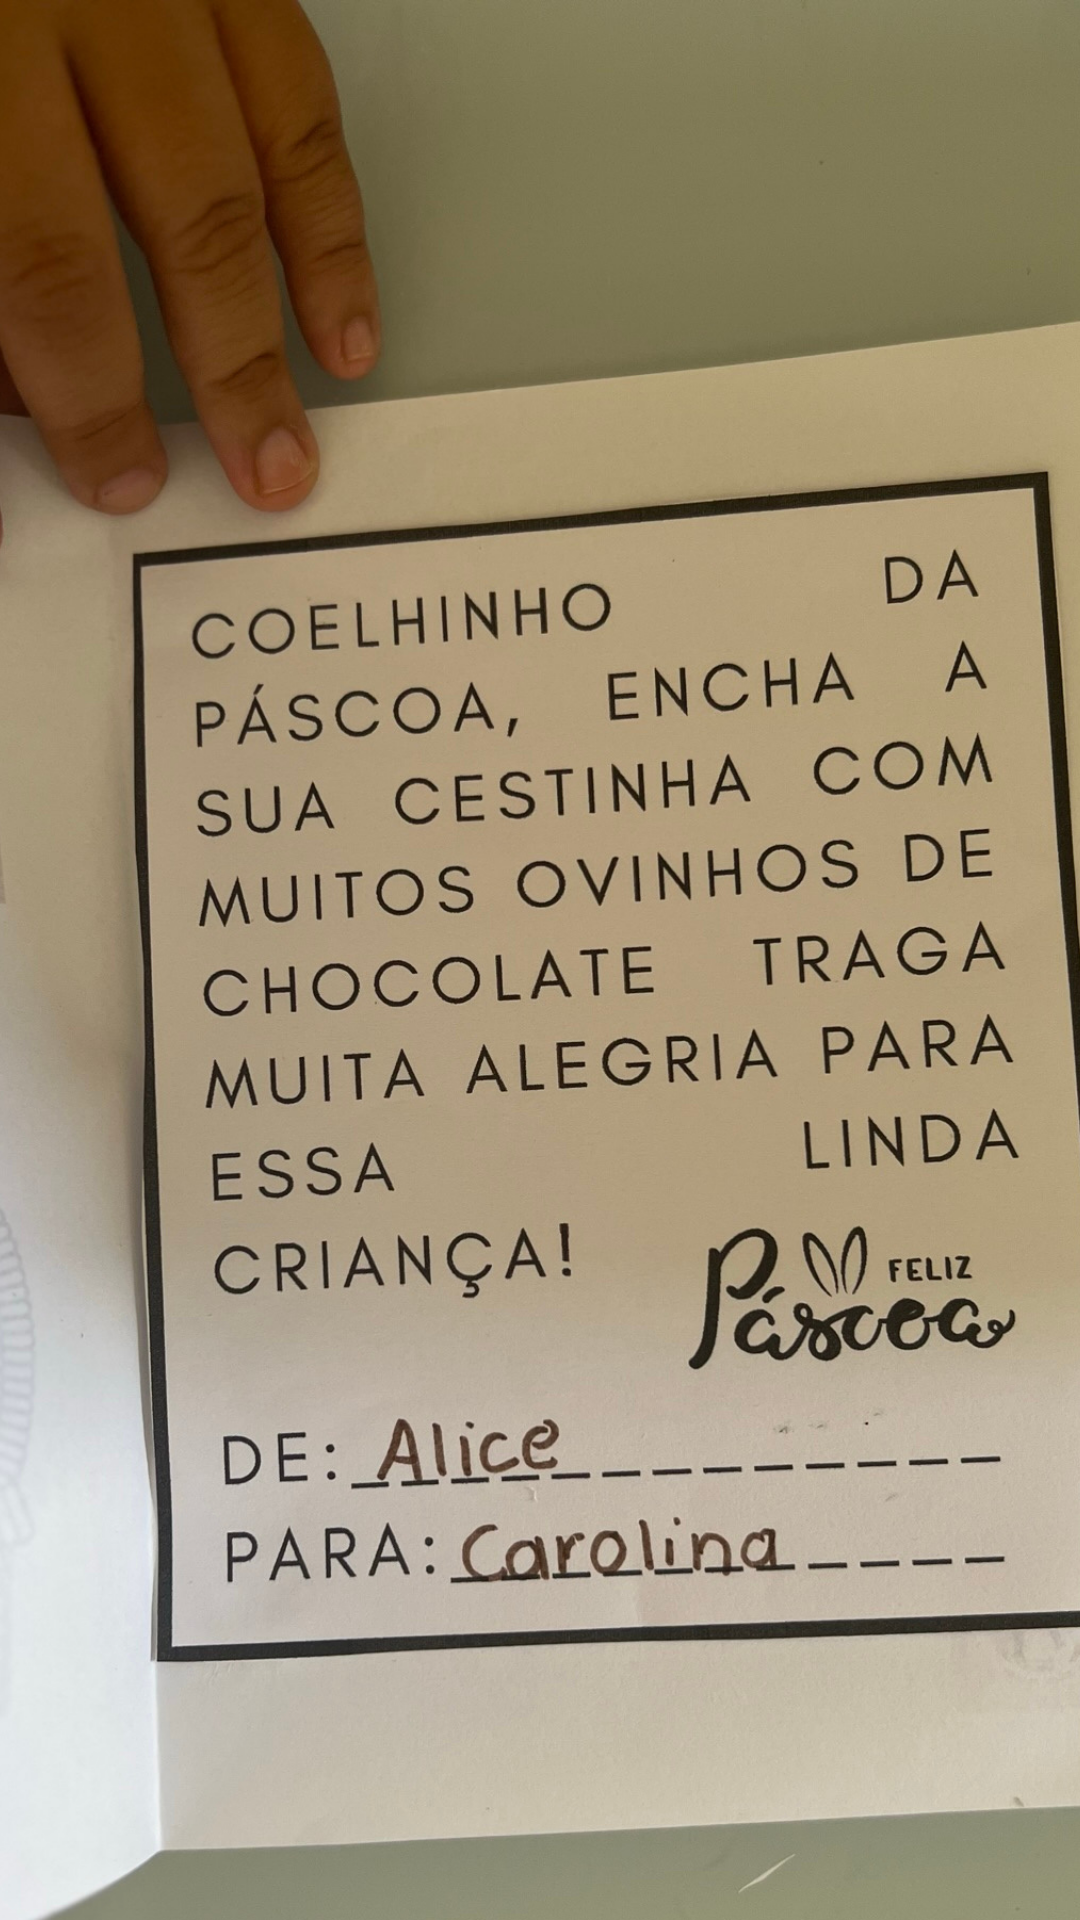 COELHINHO DA
PÁSCOA, ENCHA A
SUA CESTINHA COM
MUITOS OVINHOS DE
CHOCOLATE TRAGA
MUITA ALEGRIA PARA
ESSA LINDA
CRIANÇA!
FELIZ
Páscoa
DE: Alice
PARA: Carolina